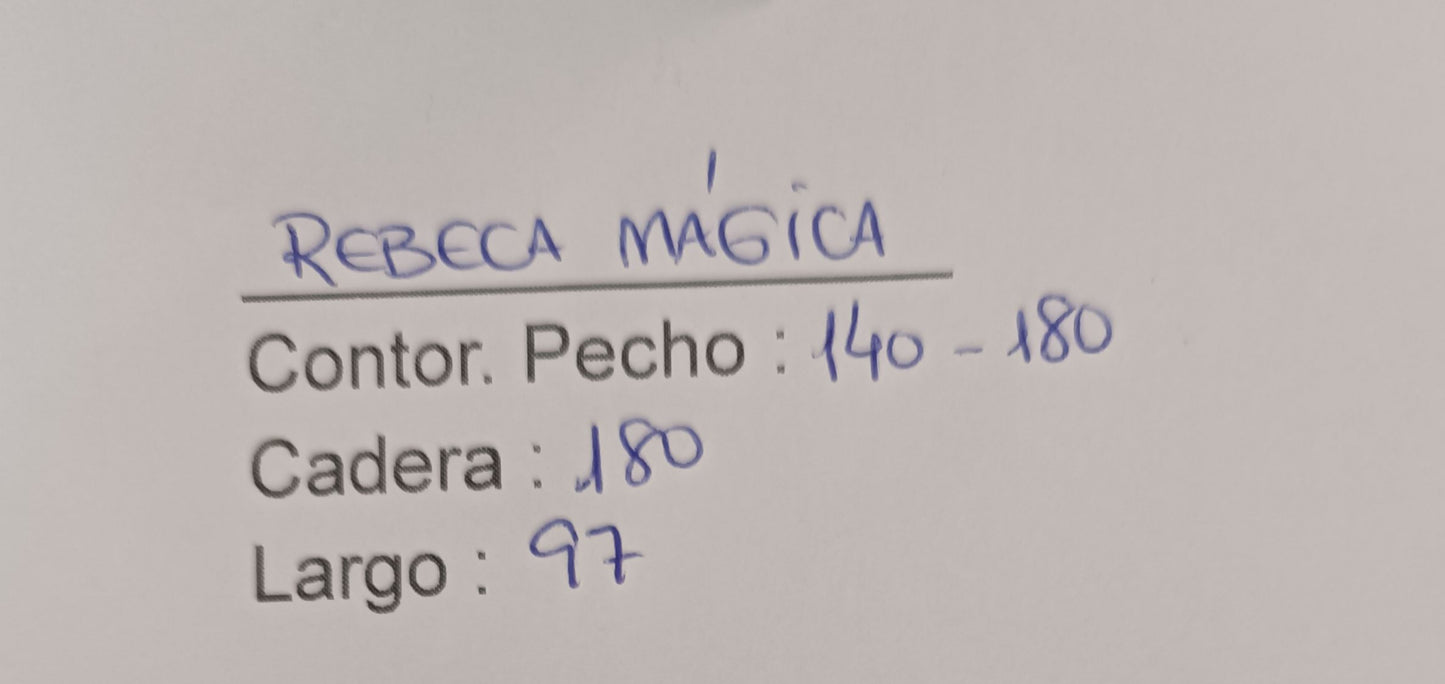 REBECA MÁGICA
Contor. Pecho : 140 - 180
Cadera : 180
Largo : 97